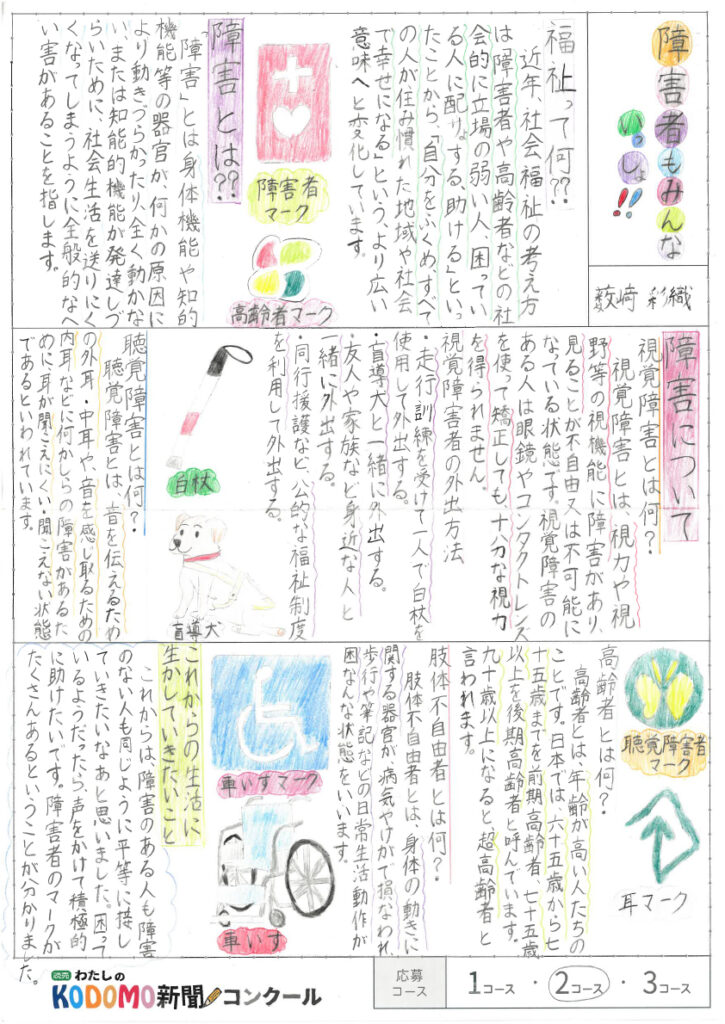 障害者もみんな
いっしょ!!
藪崎 彩織
福祉って何??
近年、社会福祉の考え方
は「障害者や高齢者などの社
会的に立場の弱い人、困ってい
る人に配りょする、助ける」といっ
たことから、「自分をふくめ、すべて
の人が住み慣れた地域や社会
で幸せになる」という、より広い
意味へと変化しています。
障害者
マーク
高齢者マーク
障害とは??
「障害」とは身体機能や知的
機能等の器官が、何かの原因に
より動きづらかったり全く動かな
い、または知能的機能が発達しづ
らいために、社会生活を送りにく
くなってしまうように全般的なへ
い害があることを指します。
障害について
視覚障害とは何?
視覚障害とは、視力や視
野等の視機能に障害があり、
見るこが不自由又は不可能に
なっている状態です。視覚障害の
ある人は眼鏡やコンタクトレンズ
を使って矯正しても、十分な視力
を得られません。
視覚障害者の外出方法
・走行訓練を受けて一人で白杖を
使用して外出する。
・盲導犬と一緒に外出する。
・友人や家族など身近な人と
一緒に外出する。
・同行援護など、公的な福祉制度
を利用して外出する。
白杖
盲導犬
聴覚障害とは何?
聴覚障害とは、音を伝えるため
の外耳・中耳や、音を感じ取るための
内耳などに何かしらの障害があるた
めに耳が聞こえにくい・聞こえない状態
であるといわれています。
聴覚障害者
マーク
耳マーク
高齢者とは何?
高齢者とは、年齢が高い人たちの
ことです。日本では、六十五歳から七
十五歳までを前期高齢者、七十五歳
以上を後期高齢者と呼んでいます。
九十歳以上になると、超高齢者と
言われます。
肢体不自由者とは何?
肢体不自由者とは、身体の動きに
関する器官が、病気やけがで損なわれ、
歩行や筆記などの日常生活動作が
困なな状態をいいます。
車いすマーク
車いす
これからの生活に
生かしていきたいこと
これからは、障害のある人も障害
のない人も同じように平等に接し
ていきたいなあと思いました。困って
いるようだったら、声をかけて積極的
に助けたいです。障害者のマークが
たくさんあるということが分かりました。
読売 わたしの
KODOMO新聞コンクール
応募
コース
1コース・2コース・3コース